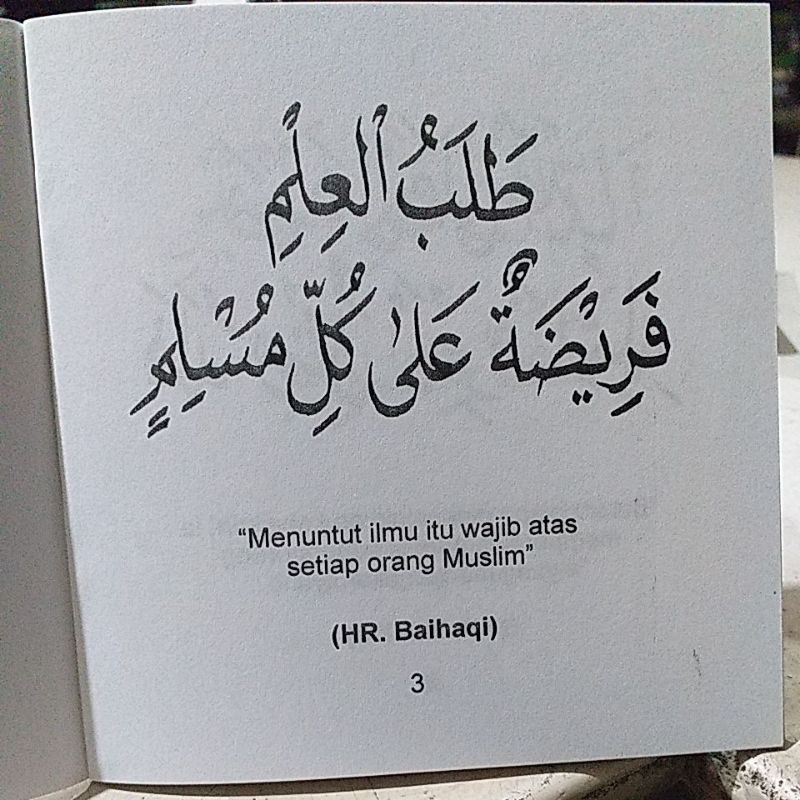 طَلَبُ الْعِلْمِ
فَرِيْضَةٌ عَلَى كُلِّ مُسْلِمٍ
“Menuntut ilmu itu wajib atas
setiap orang Muslim”
(HR. Baihaqi)
3